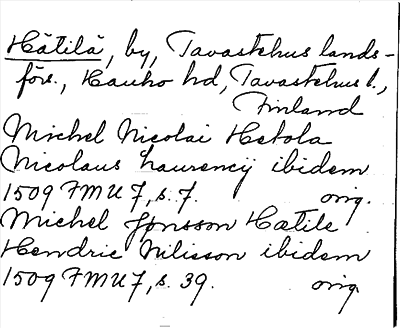 Hätilä, by, Tavastehus lands-
förs., Hauho hd, Tavastehus l.,
Finland
Michel Nicolai Hetola
Nicolaus Laurencij ibidem
1509 FMU 7, s. 7. orig.
Michel Jonsson Hatile
Hendric Nilisson ibidem
1509 FMU 7, s. 39. orig.